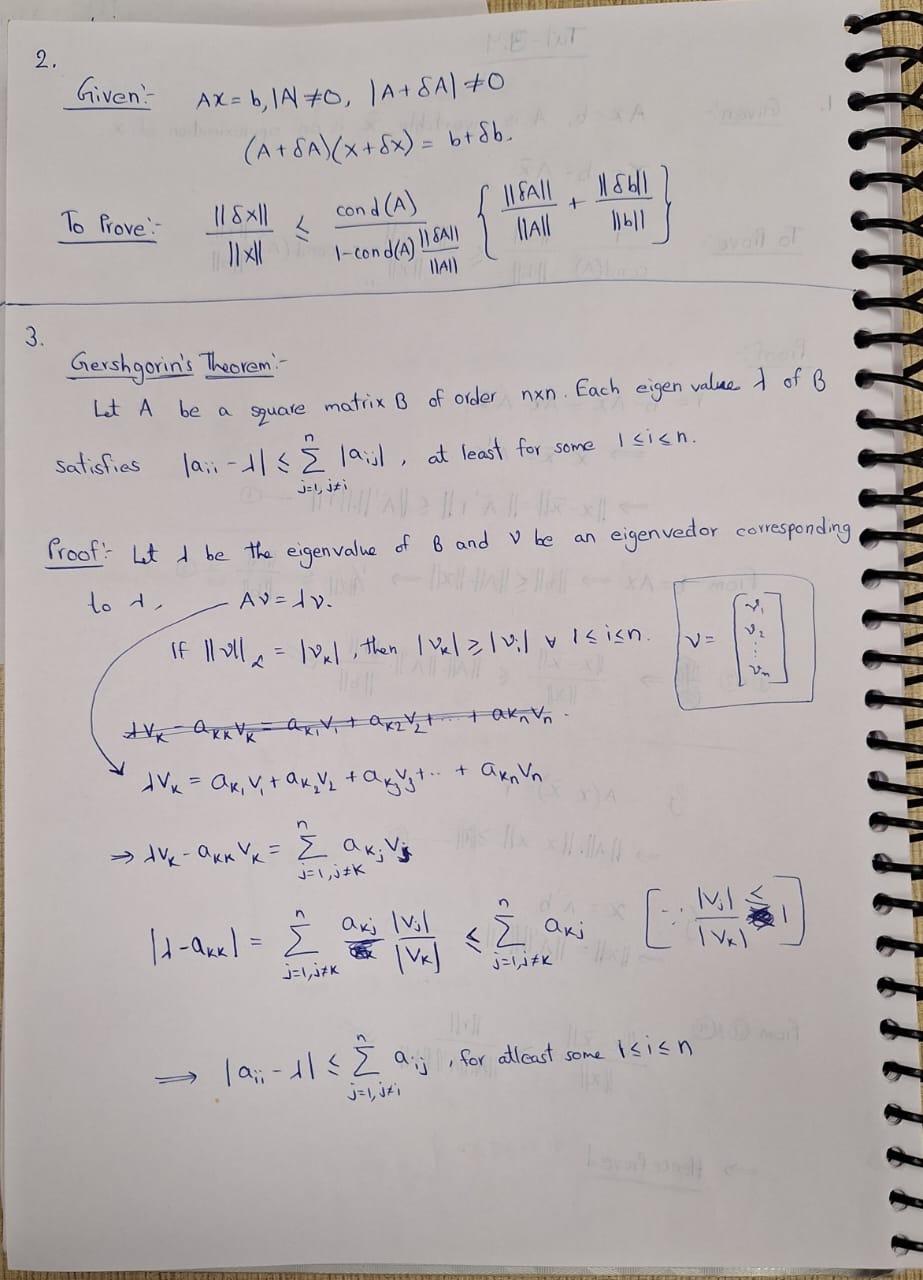 2.
Given:- AX = b, |A| ≠ 0, |A + δA| ≠ 0
(A + δA)(x + δx) = b + δb.
To Prove:- ||δx||/||x|| ≤ cond(A)/(1 - cond(A) ||δA||/||A||) { ||δA||/||A|| + ||δb||/||b|| }
3.
Gershgorin's Theorem:-
Let A be a square matrix B of order n×n. Each eigen value λ of B
satisfies |aᵢᵢ - λ| ≤ Σ_{j=1, j≠i}^{n} |aᵢⱼ|, at least for some 1 ≤ i ≤ n.
Proof:- Let λ be the eigenvalue of B and v be an eigenvector corresponding
to λ, Av = λv.
If ||v||_∞ = |v_k|, then |v_k| ≥ |vᵢ| ∀ 1 ≤ i ≤ n.
v = [v₁ v₂ ... vₙ]
λv_k - a_kk v_k = a_k1 v₁ + a_k2 v₂ + ... + a_kn vₙ.
λv_k = a_k1 v₁ + a_k2 v₂ + a_k3 v₃ + .. + a_kn vₙ
⇒ λv_k - a_kk v_k = Σ_{j=1, j≠k}^{n} a_kj vⱼ
|λ - a_kk| = Σ_{j=1, j≠k}^{n} a_kj |vⱼ|/|v_k| ≤ Σ_{j=1, j≠k}^{n} a_kj [∵ |vⱼ|/|v_k| ≤ 1]
⟹ |aᵢᵢ - λ| ≤ Σ_{j=1, j≠i}^{n} aᵢⱼ, for atleast some 1 ≤ i ≤ n